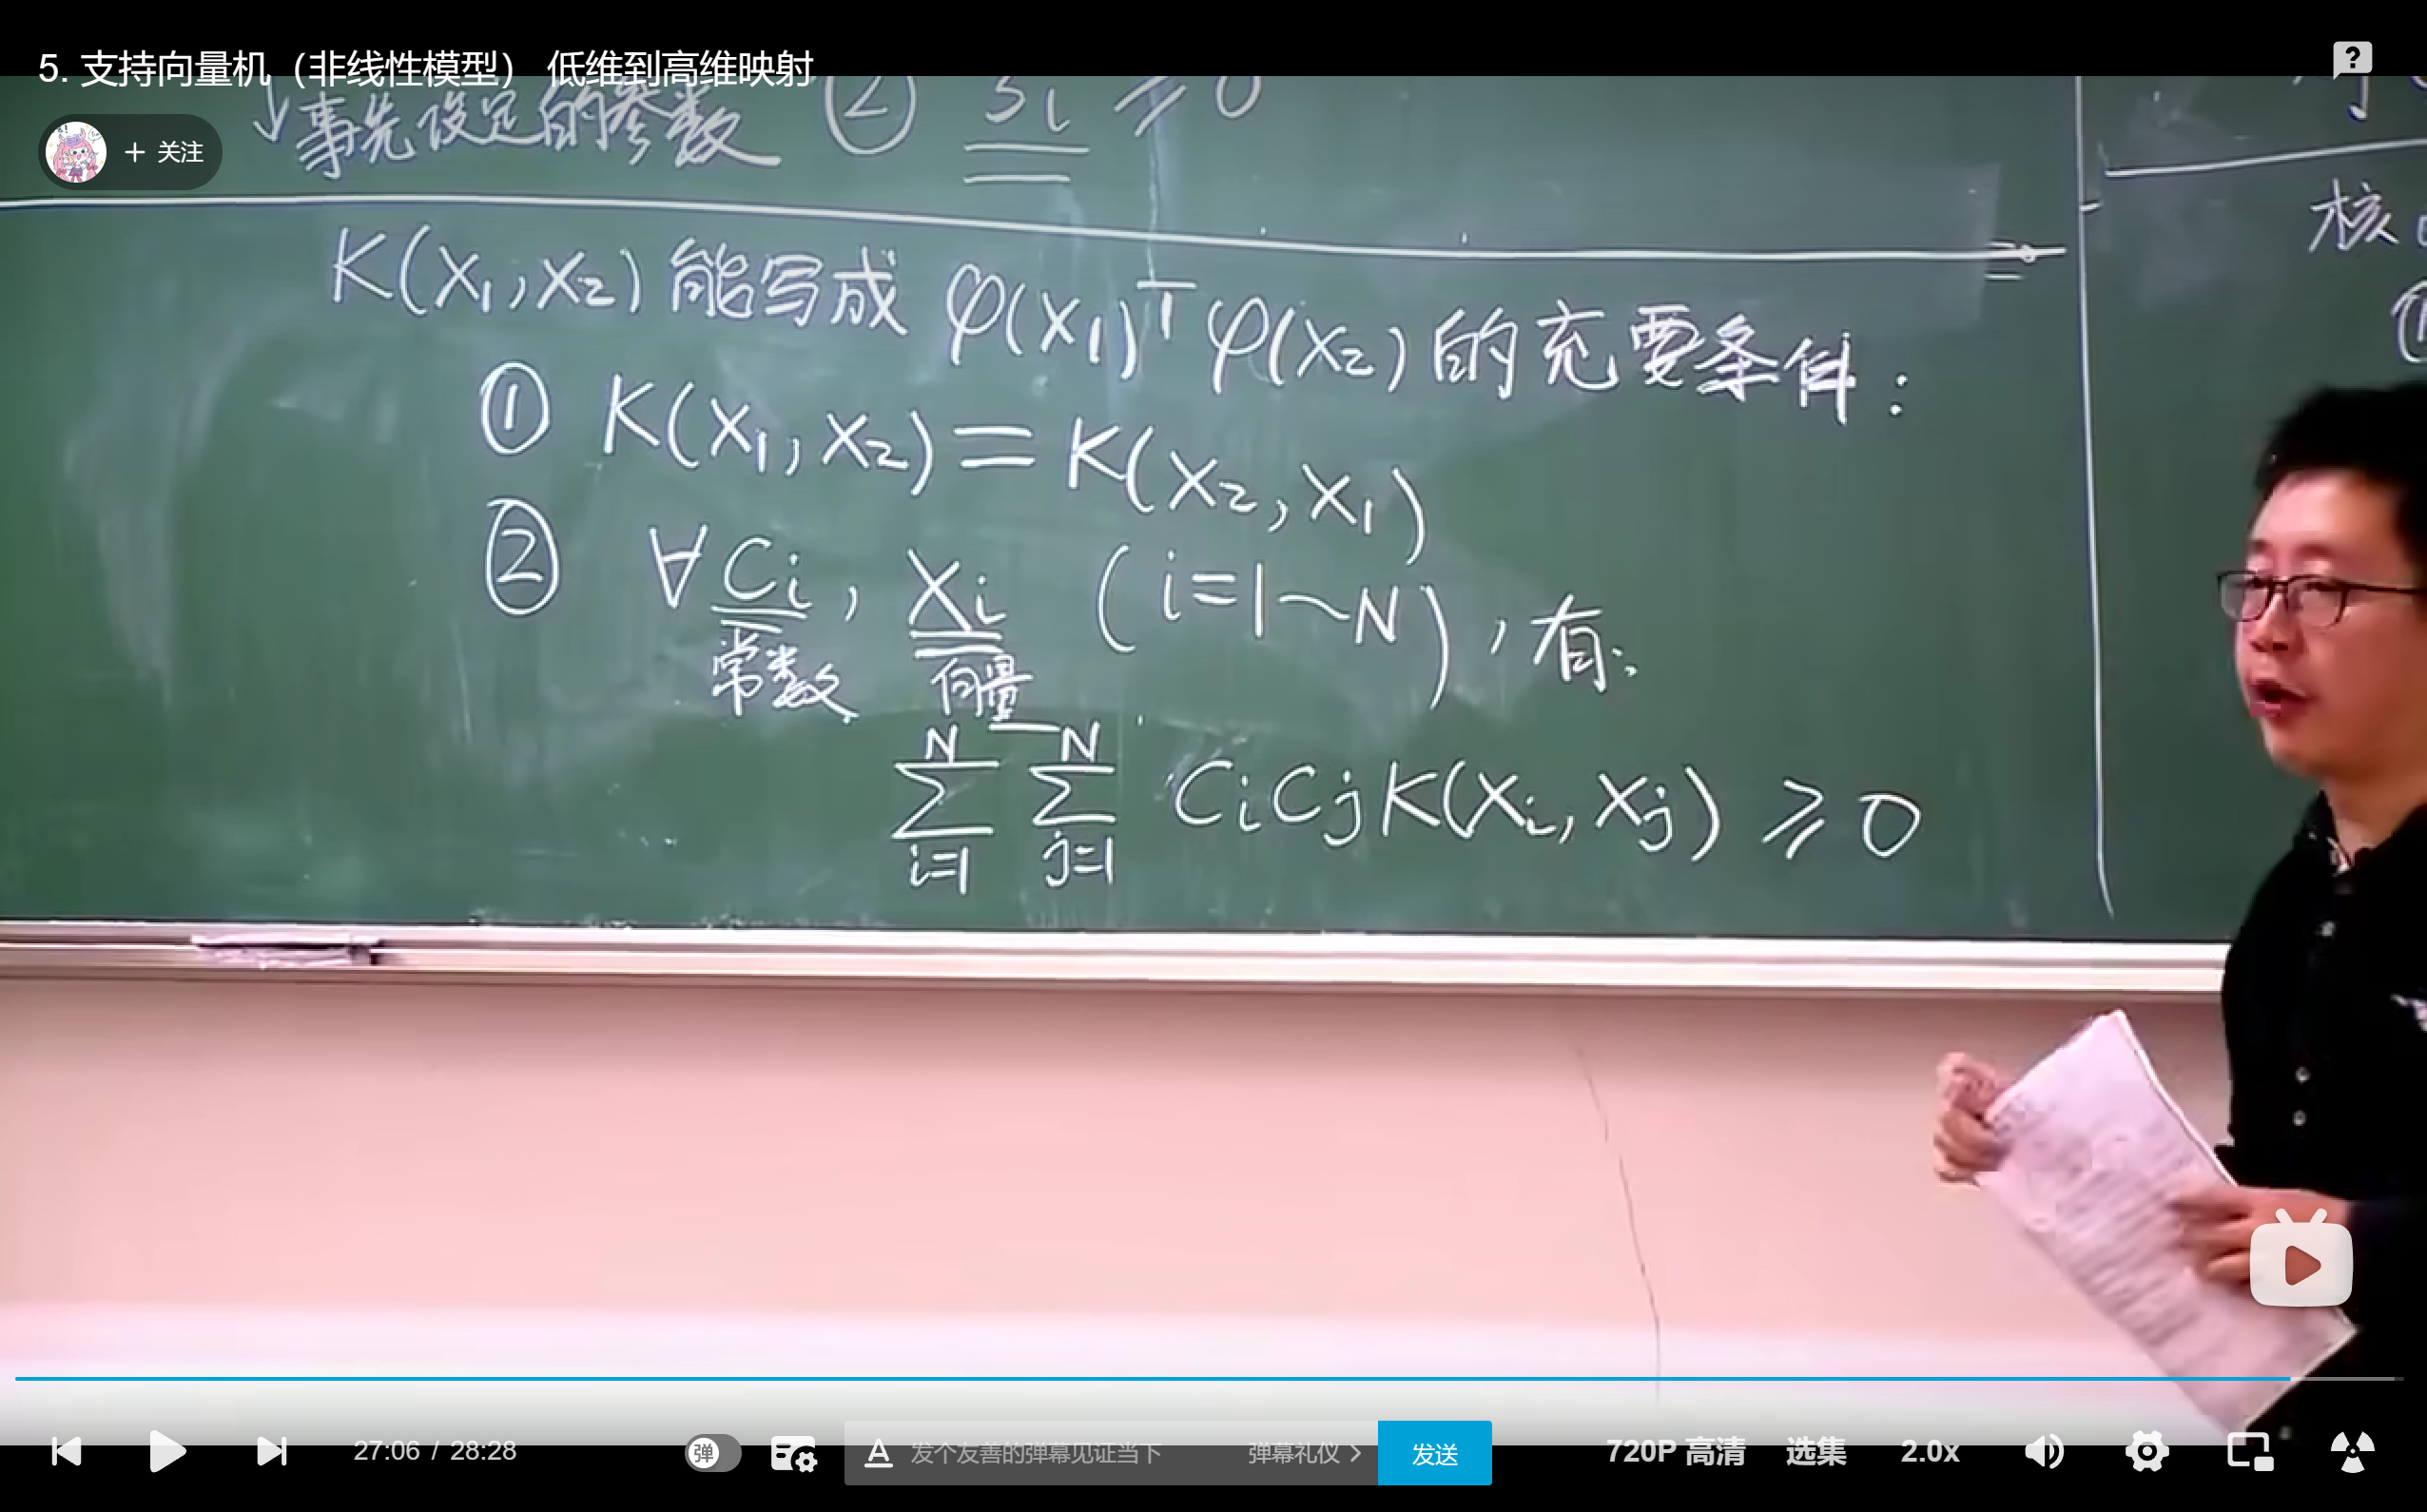 5. 支持向量机（非线性模型） 低维到高维映射
事先设定的参数 ② ≥0
+ 关注
K(X₁,X₂)能写成 φ(X₁)ᵀφ(X₂)的充要条件:
核
①
① K(X₁,X₂)=K(X₂,X₁)
② ∀Ci, Xi (i=1~N), 有:
常数 向量
N N
∑ ∑ CiCjK(Xi,Xj) ≥0
i=1 j=1
27:06 / 28:28
弹
发个友善的弹幕见证当下
弹幕礼仪 >
发送
720P 高清
选集
2.0x